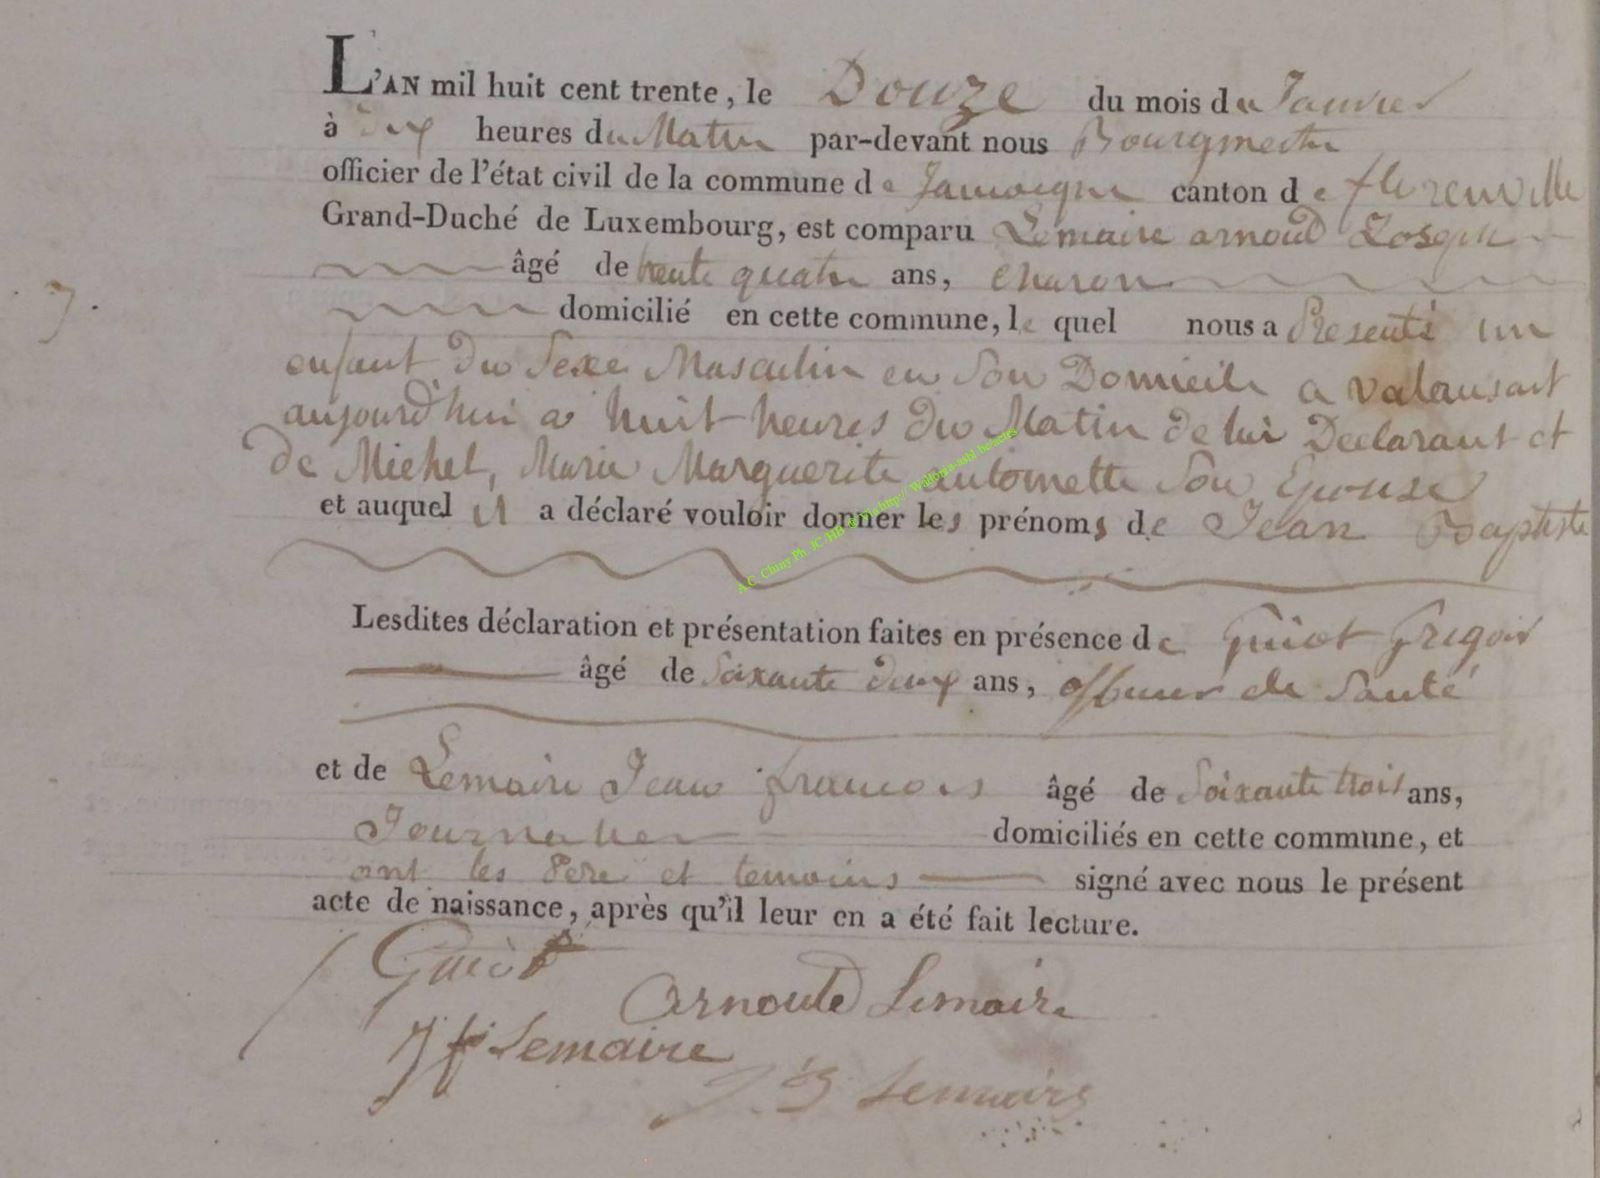 L'AN mil huit cent trente, le Douze du mois du Janvier
à dix heures du Matin par-devant nous Bourgmestre
officier de l'état civil de la commune de Jamoigne canton de florenville
Grand-Duché de Luxembourg, est comparu Lemaire arnould Joseph
âgé de trente quatre ans, charon
7.
domicilié en cette commune, le quel nous a Presenté un
enfant du Sexe Masculin en Son Domicile a valansart
aujourd'hui a huit heures du Matin de lui Declarant et
de Michel, Marie Marguerite antoinette Son Epouse
et auquel il a déclaré vouloir donner les prénoms de Jean Baptiste
Lesdites déclaration et présentation faites en présence de Guiot Grégoir
âgé de Soixante deux ans, officier de Santé
et de Lemaire Jean francois âgé de Soixante trois ans,
Journalier domiciliés en cette commune, et
ont les Père et temoins signé avec nous le présent
acte de naissance, après qu'il leur en a été fait lecture.
Guiot
Arnould Lemaire
J f Lemaire
J. B Lemaire
A.C. Chiny Ph. JC/HB http://Wallonia-asbl.be/actes